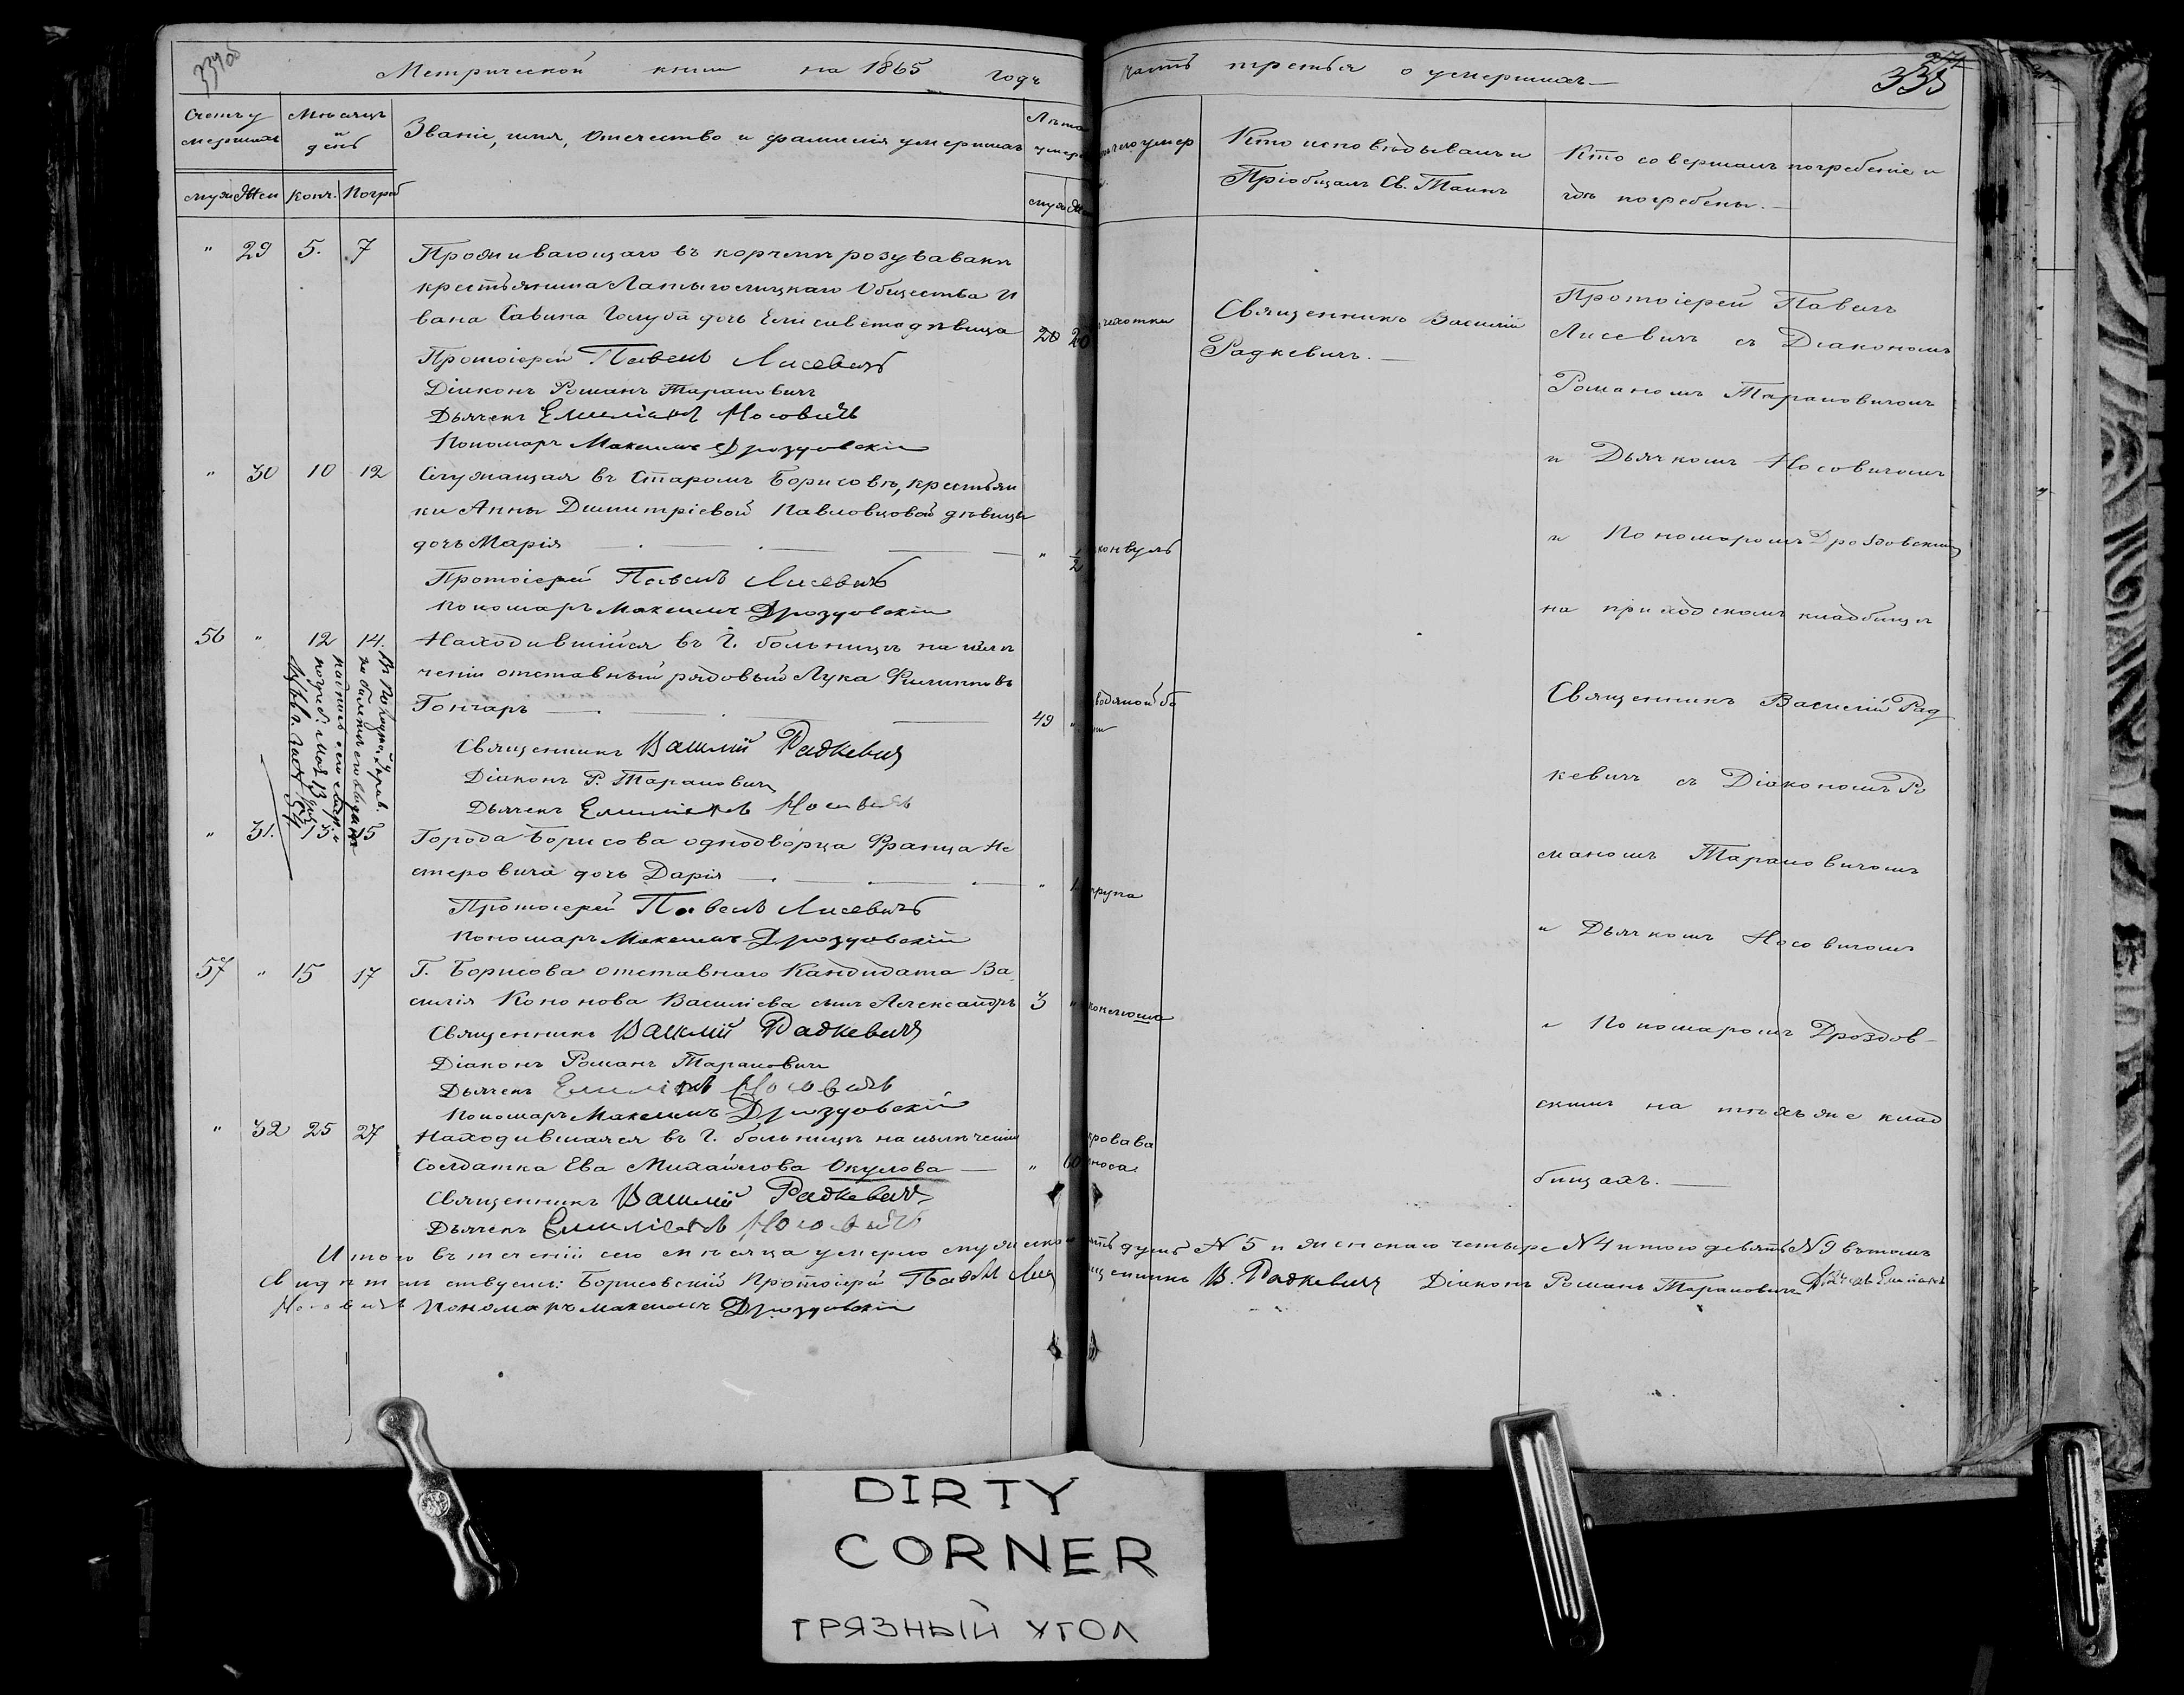 334об
Метрической книги на 1865 годъ часть третья о умершихъ
335
Счетъ умершихъ
Мѣсяцъ и день
Званіе, имя, отечество и фамилія умершихъ
Лѣта
чего умер
Кто исповѣдывалъ и
Пріобщалъ Св. Таинъ
Кто совершалъ погребеніе и
гдѣ погребены.
муж Жен конч. Погреб
муж
" 29 5. 7
Проживающаго въ корчмѣ
крестьянина Общества И
вана Савина Голуба дочь Елисавета дѣвица 20 20 чахотки
Протоіерей Павелъ Лисевичъ
Діаконъ Романъ Тарановичъ
Дьячекъ Емиліанъ Носовичъ
Пономарь Максимъ Дроздовскій
Священникъ Василій
Радкевичъ.
" 30 10 12
Служащая въ Старомъ Борисовѣ, крестьян
ки Анны Димитріевой Павловцовой дѣвицы
дочь Марія " 1/2 конвульс
Протоіерей Павелъ Лисевичъ
Пономарь Максимъ Дроздовскій
56 " 12 14.
Находившійся въ Г. больницѣ на излѣ
ченіи отставный рядовый Лука Филиповъ
Гончаръ 49 " водяной бо
Священникъ Василій Радкевичъ
Діаконъ Р. Тарановичъ
Дьячекъ Емиліанъ Носовичъ
" 31. 13 15
Города Борисова однодворца Франца Не
стеровича дочь Дарія " 1 крупа
Протоіерей Павелъ Лисевичъ
Пономарь Максимъ Дроздовскій
57 " 15 17
Г. Борисова отставнаго Кандидата Ва
силія Кононова Васильева сынъ Александръ 3 " коклюша
Священникъ Василій Радкевичъ
Діаконъ Романъ Тарановичъ
Дьячекъ Емиліанъ Носовичъ
Пономарь Максимъ Дроздовскій
" 32 25 27
Находившаяся въ Г. больницѣ на излѣченіи
Солдатка Ева Михайлова Окулова " 60 кровава
носа
Священникъ Василій Радкевичъ
Дьячекъ Емиліанъ Носовичъ
Протоіерей Павелъ
Лисевичъ съ Діакономъ
Романомъ Тарановичомъ
и Дьячкомъ Носовичомъ
и Пономаромъ Дроздовскимъ
на приходскомъ кладбищѣ
Священникъ Василій Рад
кевичъ съ Діакономъ Ро
маномъ Тарановичомъ
и Дьячкомъ Носовичомъ
и Пономаромъ Дроздов
скимъ на тѣхъ же клад
бищахъ.
Итого въ теченіи сего мѣсяца умерло мужеска пять душъ № 5 и женскаго четыре № 4 итого девять № 9 въ томъ
Свидѣтельствуемъ: Борисовскій Протоіерей Павелъ Лис щенникъ В. Радкевичъ Діаконъ Романъ Тарановичъ Дьячекъ Емиліанъ
Носовичъ Пономарь Максимъ Дроздовскій
DIRTY
CORNER
ГРЯЗНЫЙ УГОЛ